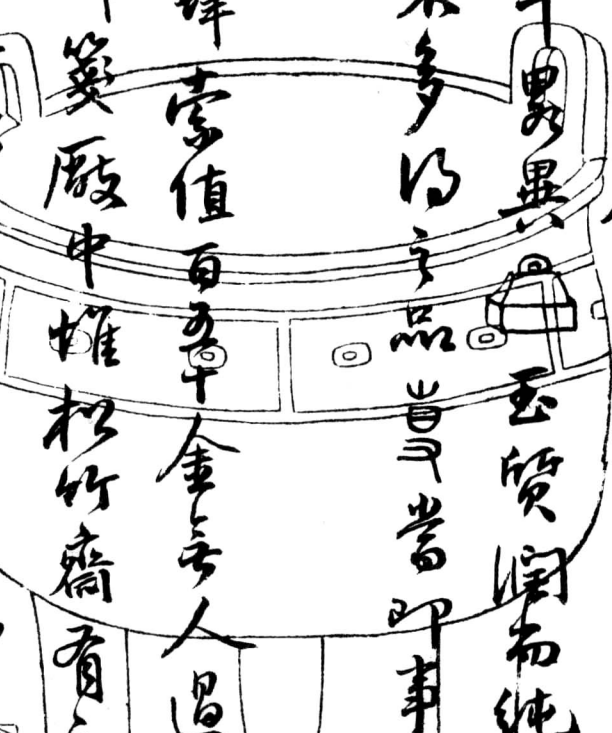 畧異玉質潤而純
多得之品當即事
索值百五十金無人過
箋厰中惟松竹齋有